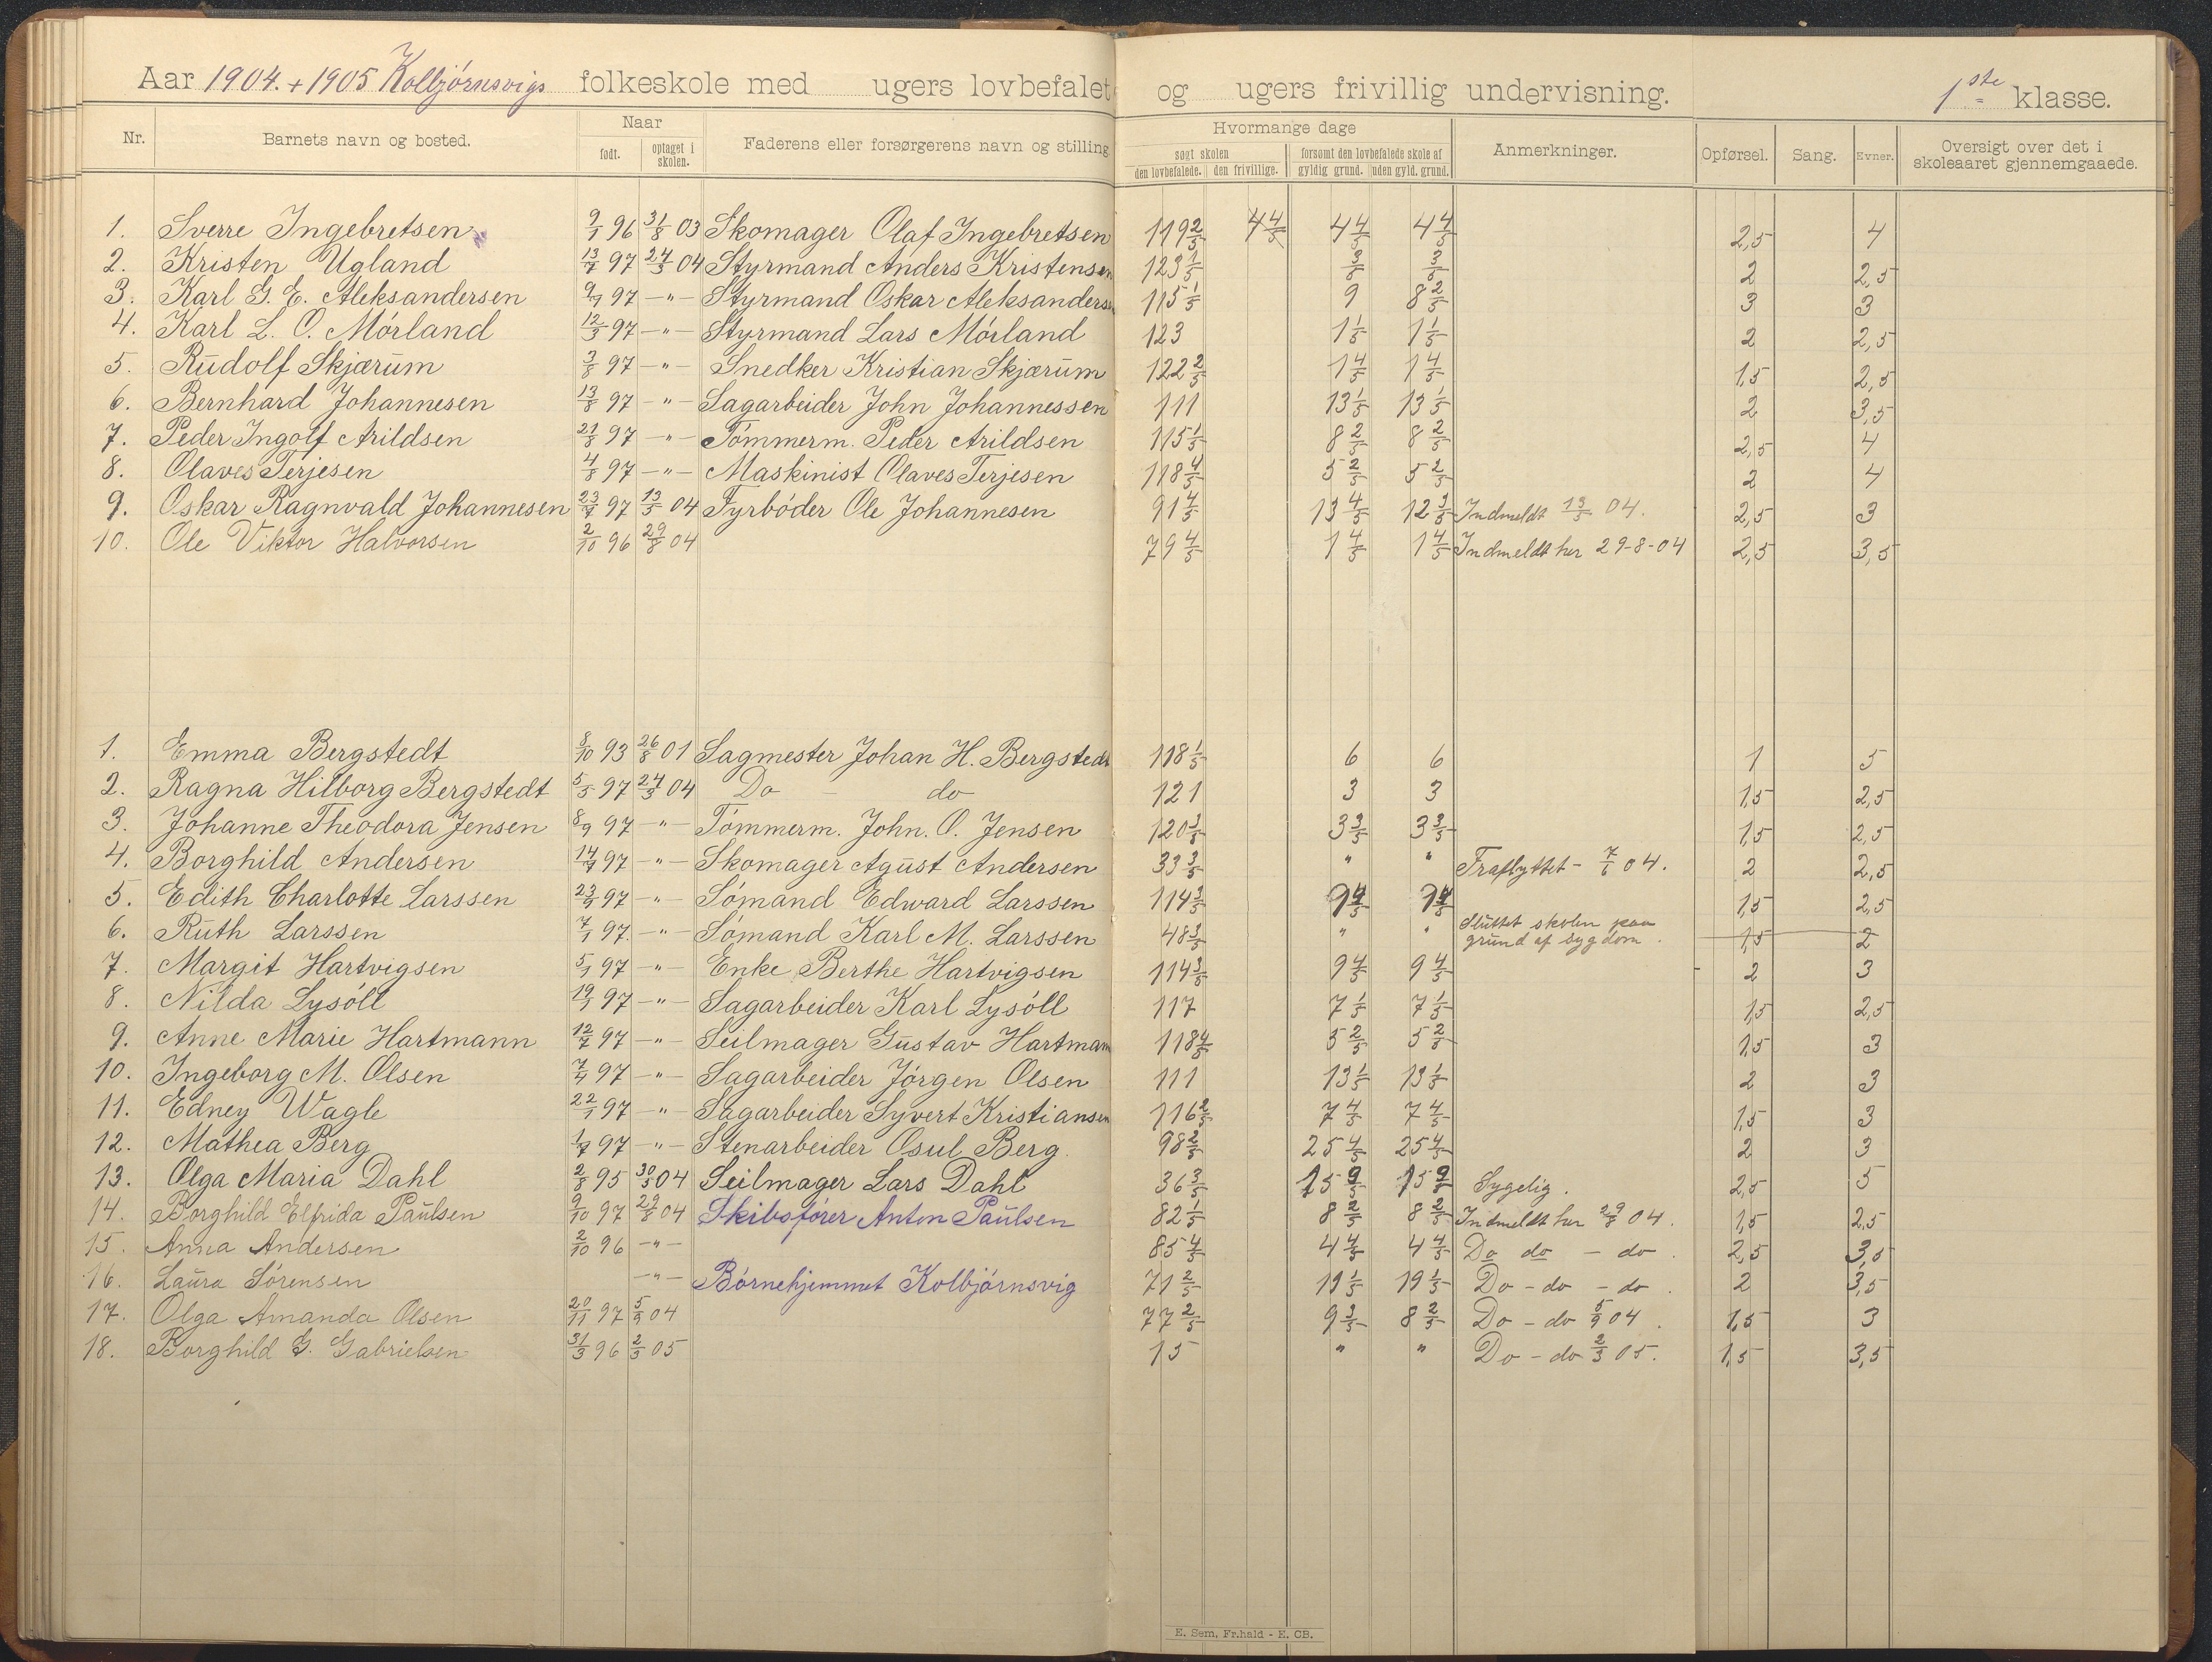 Aar 1904.+1905 Kolbjørnsvigs folkeskole med ugers lovbefalet og ugers frivillig undervisning. 1ste klasse.
Nr. Barnets navn og bosted. Naar født. optaget i skolen. Faderens eller forsørgerens navn og stilling Hvormange dage søgt skolen den lovbefalede. den frivillige. forsømt den lovbefalede skole af gyldig grund. uden gyld. grund. Anmerkninger. Opførsel. Sang. Evner. Oversigt over det i skoleaaret gjennemgaaede.
1. Sverre Ingebretsen 9/1 96 31/8 03 Skomager Olaf Ingebretsen 119 2/5 4 4/5 4 4/5 4 4/5 2,5 4
2. Kristen Ugland 13/7 97 24/5 04 Styrmand Anders Kristensen 123 1/5 3/5 3/5 2 2,5
3. Karl G. E. Aleksandersen 9/9 97 -"- Styrmand Oskar Aleksandersen 115 1/5 9 8 2/5 3 3
4. Karl L. O. Mórland 12/3 97 -"- Styrmand Lars Mórland 123 1 1/5 1 1/5 2 2,5
5. Rudolf Skjærum 3/8 97 -"- Snedker Kristian Skjærum 122 2/5 1 4/5 1 4/5 1,5 2,5
6. Bernhard Johannesen 13/8 97 -"- Sagarbeider John Johannessen 111 13 1/5 13 1/5 2 3,5
7. Peder Ingolf Arildsen 21/8 97 -"- Tómmerm. Peder Arildsen 115 1/5 8 2/5 8 2/5 2,5 4
8. Olaves Terjesen 4/8 97 -"- Maskinist Olaves Terjesen 118 4/5 5 2/5 5 2/5 2 4
9. Oskar Ragnvald Johannesen 23/7 97 13/5 04 Fyrbóder Ole Johannesen 91 4/5 13 4/5 12 3/5 Indmeldt 13/5 04. 2,5 3
10. Ole Viktor Halvorsen 2/10 96 29/8 04 79 4/5 1 4/5 1 4/5 Indmeldt her 29-8-04 2,5 3,5
1. Emma Bergstedt 8/10 93 26/8 01 Sagmester Johan H. Bergstedt 118 1/5 6 6 1 5
2. Ragna Hilborg Bergstedt 5/5 97 24/5 04 Do - do 121 3 3 1,5 2,5
3. Johanne Theodora Jensen 8/9 97 -"- Tómmerm. John. O. Jensen 120 3/5 3 3/5 3 3/5 1,5 2,5
4. Borghild Andersen 14/7 97 -"- Skomager Agust Andersen 33 3/5 " " Fraflyttet - 7/6 04. 2 2,5
5. Edith Charlotte Larssen 23/9 97 -"- Sómand Edward Larssen 114 3/5 9 4/5 9 4/5 1,5 2,5
6. Ruth Larssen 7/1 97. -"- Sómand Karl M. Larssen 48 3/5 " " Sluttet skolen paa grund af sygdom. 1,5 2
7. Margit Hartvigsen 5/1 97 -"- Enke Berthe Hartvigsen 114 3/5 9 4/5 9 4/5 2 3
8. Nilda Lysóll 19/1 97 -"- Sagarbeider Karl Lysóll 117 7 1/5 7 1/5 1,5 2,5
9. Anne Marie Hartmann 12/7 97 -"- Seilmager Gustav Hartmann 118 4/5 5 2/5 5 2/5 1,5 3
10. Ingeborg M. Olsen 7/4 97 -"- Sagarbeider Jórgen Olsen 111 13 1/5 13 1/5 2 3
11. Edney Wagle 22/1 97 -"- Sagarbeider Syvert Kristiansen 116 2/5 7 4/5 7 4/5 1,5 3
12. Mathea Berg 1/7 97 -"- Stenarbeider Osul Berg. 98 2/5 25 4/5 25 4/5 2 3
13. Olga Maria Dahl 2/8 95 30/5 04 Seilmager Lars Dahl 36 3/5 Sygelig. 2,5 5
14. Borghild Elfrida Paulsen 9/10 97 29/8 04 Skibsfører Anton Paulsen 82 1/5 8 2/5 8 2/5 Indmeldt her 29/8 04. 1,5 2,5
15. Anna Andersen 2/10 96 -"- 85 4/5 4 4/5 4 4/5 Do do - do. 2,5 3,5
16. Laura Sórensen -"- Bórnehjemmet Kolbjórnsvig 71 2/5 19 1/5 19 1/5 Do - do - do. 2 3,5
17. Olga Amanda Olsen 20/11 97 5/9 04 77 2/5 9 3/5 8 2/5 Do - do 5/9 04. 1,5 3
18. Borghild G. Gabrielsen 31/3 96 2/3 05 15 " " Do - do 2/3 05. 1,5 3,5
E. Sem, Fr.hald - E. CB.